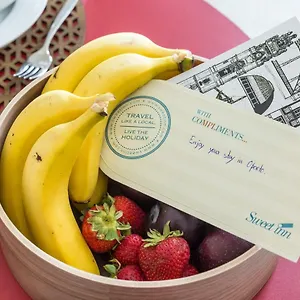 TRAVEL
LIKE A LOCAL
LIVE THE
HOLIDAY
WITH
COMPLIMENTS...
Enjoy your stay in
Sweet inn